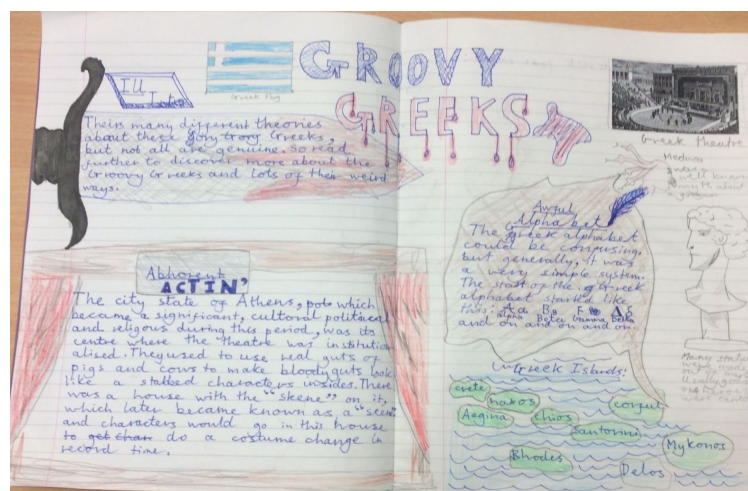 GROOVY
GREEKS
Ill
Greek Flag
Theirs many different theories
about these gory Greeks,
but not all are genuine. So read
further to discover more about the
Groovy Greeks and lots of their weird
ways.
Abhorent
ACTIN'
The city state of Athens, which
became a significant, cultoral politacal
and religous during this period, was its
centre where the theatre was institution
alised. They used to use real guts of
pigs and cows to make bloody guts look
like a stabbed characters insides. There
was a house with the "skene" on it,
which later became known as a "scene"
and characters would go in this house
to get do a costume change in
record time.
Greek Theatre
Medusa
well known
myth about
Awful
Alphabet
The greek alphabet
could be confusing,
but generally, it was
a very simple system.
The start of the Greek
alphabet started like
this: Aα Bβ Γ Δδ
alpha Beta Gamma Delta
and on and on and on
Many statues
were made
Greek Islands:
crete
naxos
Aegina
chios
corful
Santorini
Mykonos
Rhodes
Delos